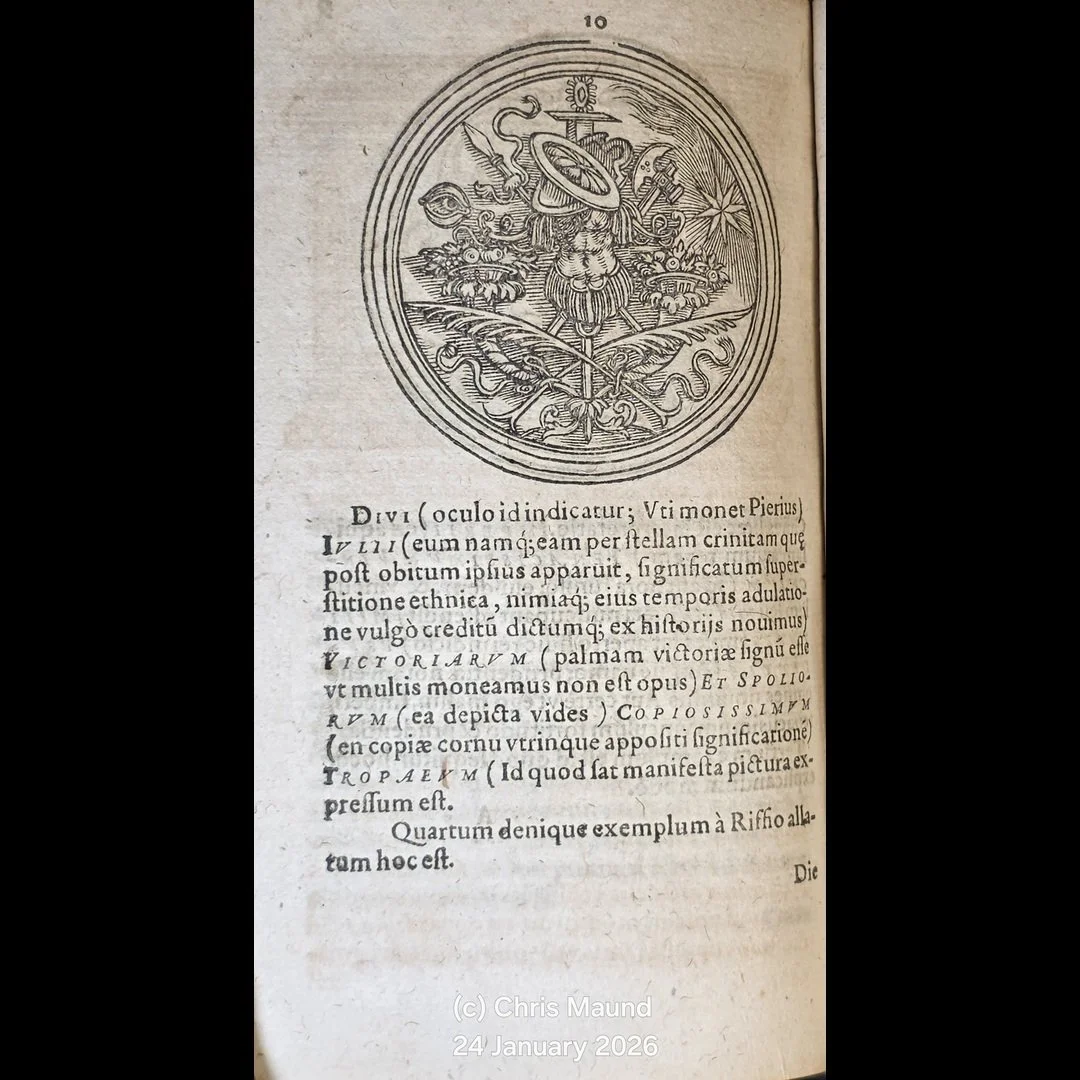 10
DIVI ( oculo id indicatur; Vti monet Pierius)
IVLII (eum namq́; eam per ſtellam crinitam quę
poſt obitum ipſius apparuit, ſignificatum ſuper-
ſtitione ethnica, nimiaq́; eius temporis adulatio-
ne vulgò creditū dictumq́; ex hiſtorijs nouimus)
VICTORIARVM (palmam victoriæ ſignū eſſe
vt multis moneamus non eſt opus) ET SPOLIO-
RVM (ea depicta vides ) COPIOSISSIMVM
(en copiæ cornu vtrinque appoſiti ſignificationē)
TROPAEVM (Id quod ſat manifeſta pictura ex-
preſſum eſt.
Quartum denique exemplum à Riffio alla-
tum hoc eſt.
Die
(c) Chris Maund
24 January 2026